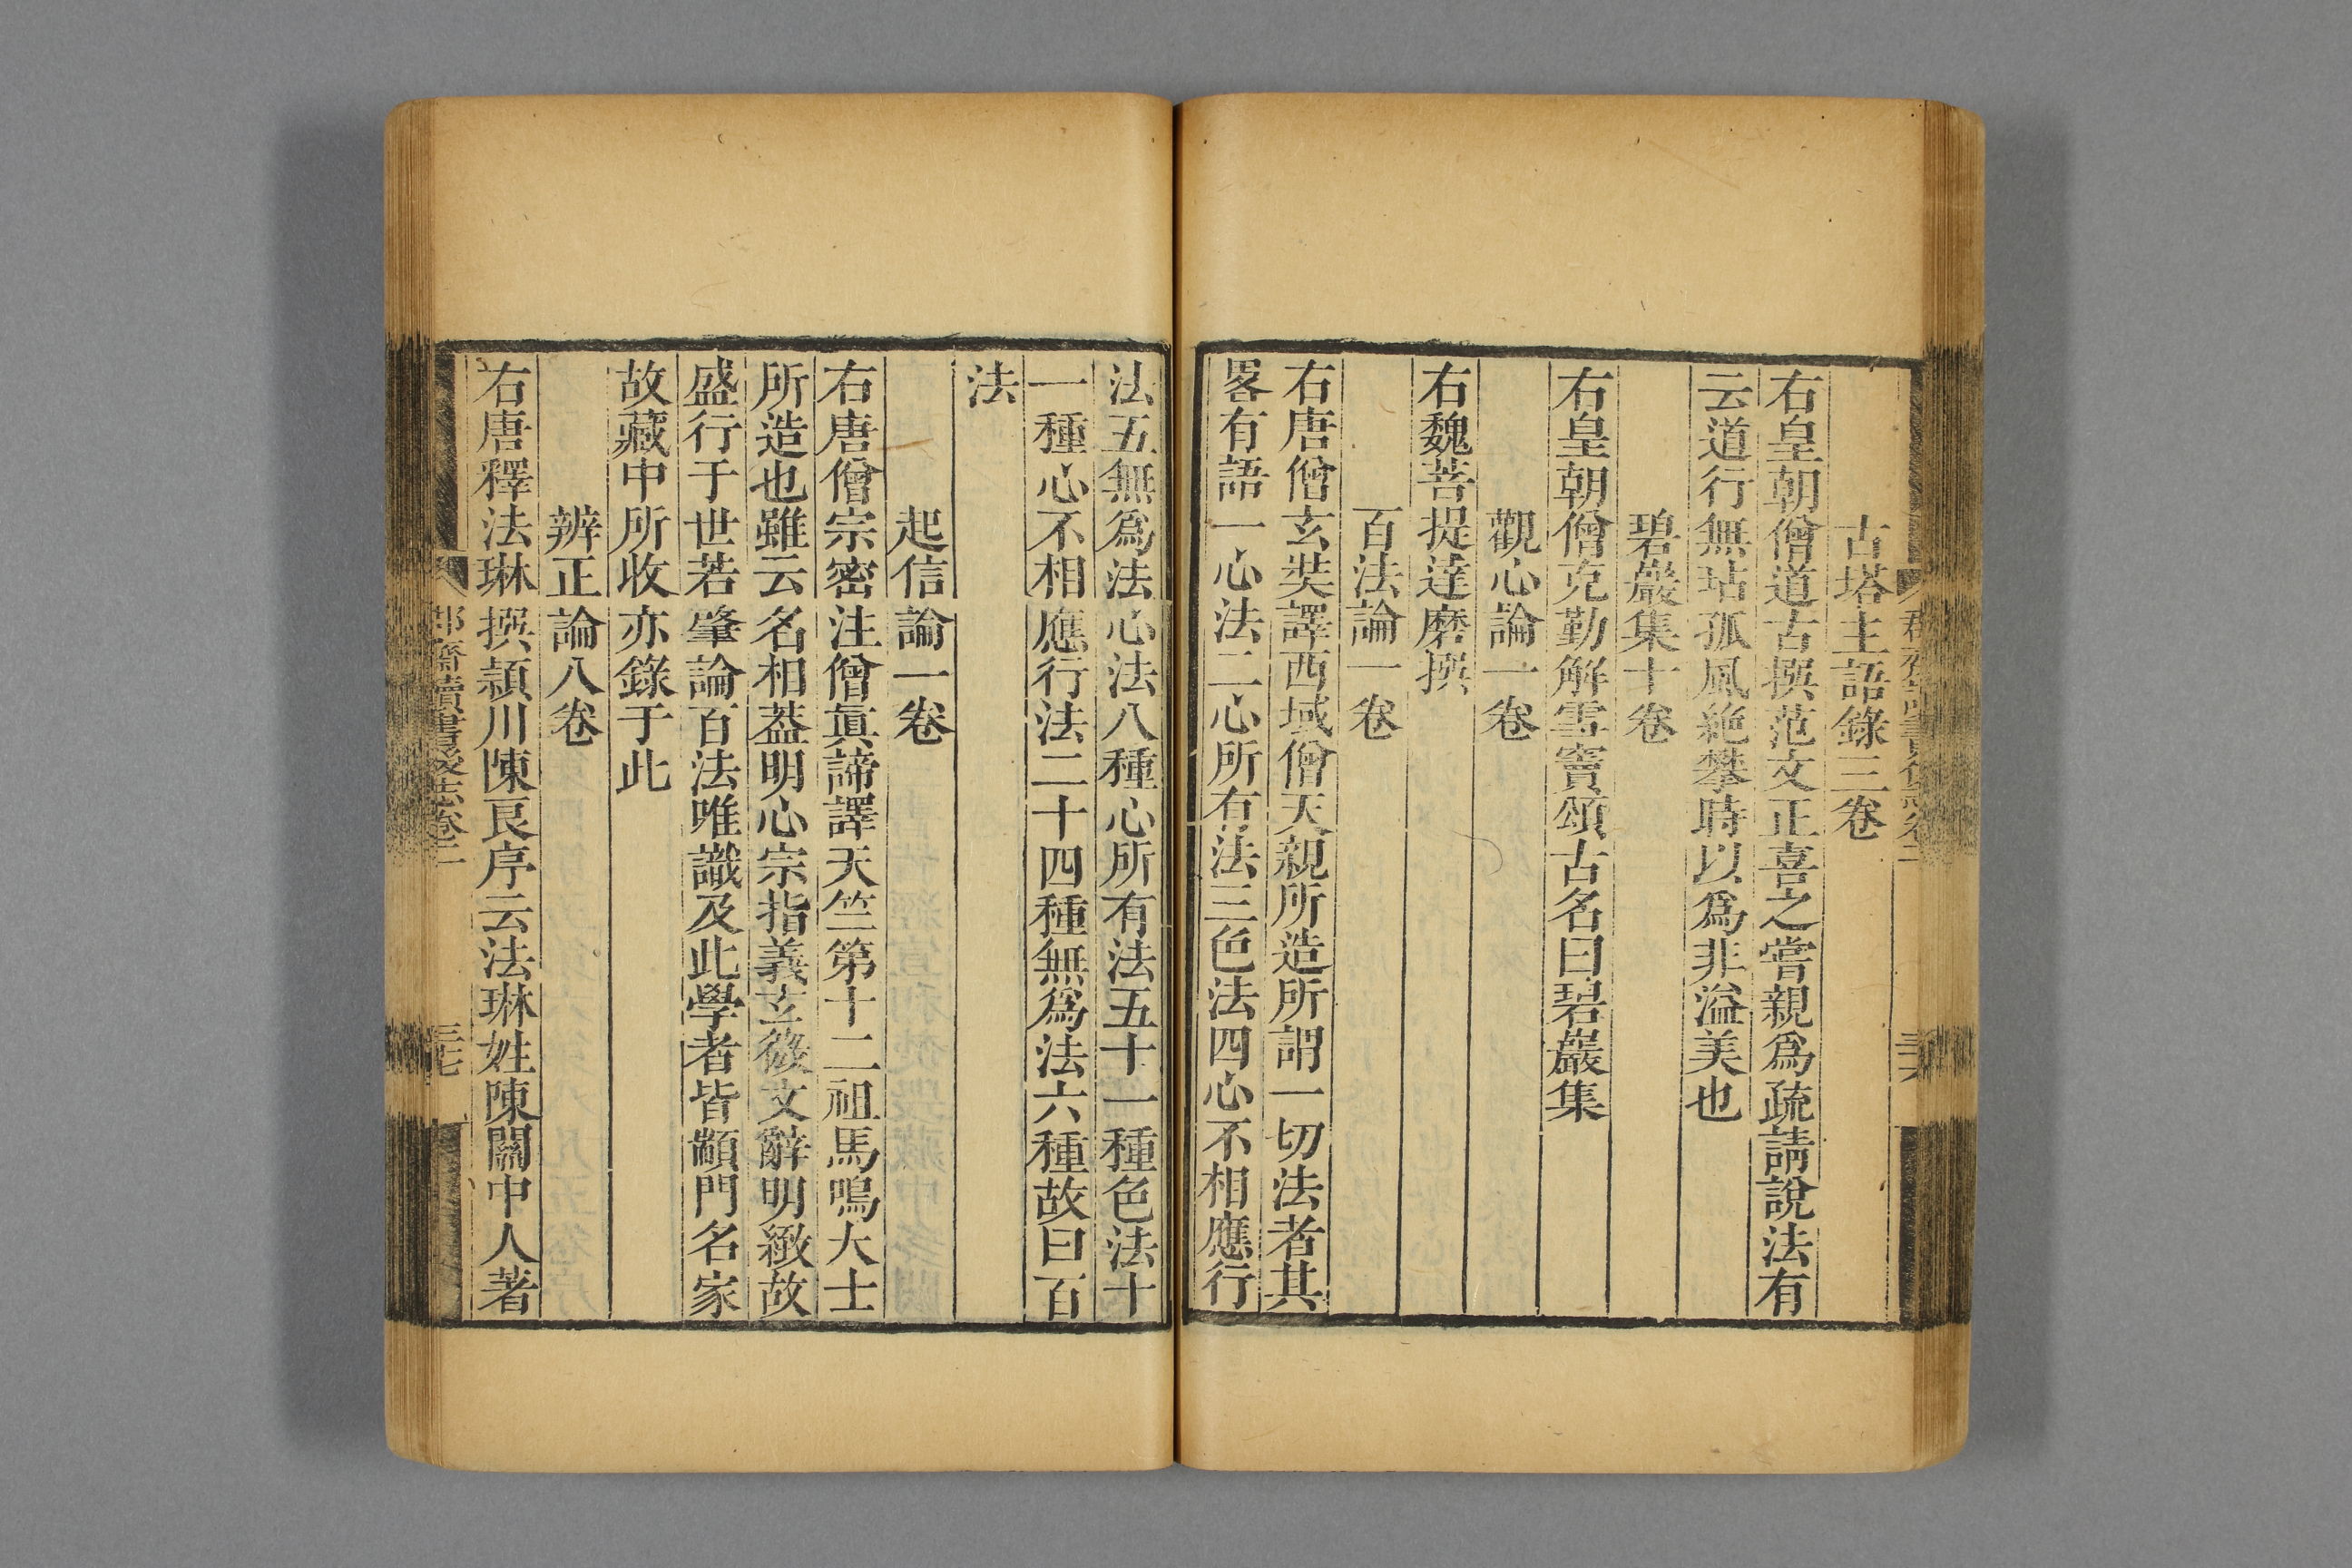 古塔主語錄三卷
右皇朝僧道古撰范文正喜之嘗親爲疏請說法有
云道行無玷孤風絶攀時以爲非溢美也
碧巖集十卷
右皇朝僧克勤解雪竇頌古名曰碧巖集
觀心論一卷
右魏菩提達磨撰
百法論一卷
右唐僧玄奘譯西域僧天親所造所謂一切法者其
畧有語一心法二心所有法三色法四心不相應行
法五無爲法心法八種心所有法五十一種色法十
一種心不相應行法二十四種無爲法六種故曰百
法
起信論一卷
右唐僧宗密注僧眞諦譯天竺第十二祖馬鳴大士
所造也雖云名相葢明心宗指義玄微文辭明緻故
盛行于世若肇論百法唯識及此學者皆顓門名家
故藏中所收亦錄于此
辨正論八卷
右唐釋法琳撰頴川陳良序云法琳姓陳關中人著
郡齋讀書後志卷二
三七